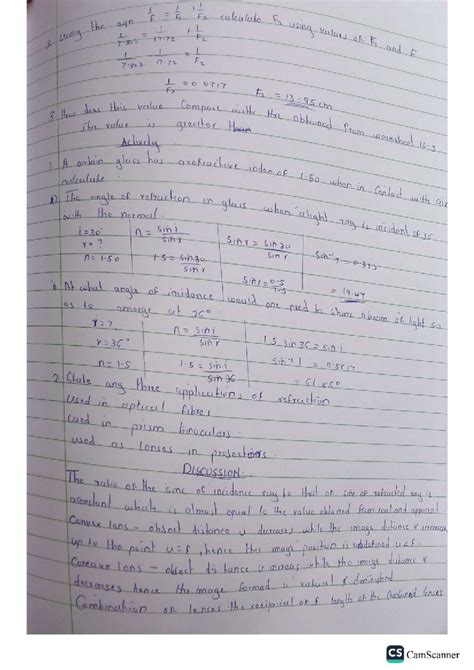 2. Using the eqn 1/F = 1/F1 + 1/F2 calculate F2 using values of F1 and F
1/7.802 = 1/17.72 + 1/F2
1/7.802 - 1/17.72 = 1/F2
1/F2 = 0.0717 F2 = 13.95cm
3. How does this value compare with the obtained from worksheet 16.3
The value is greater
Activity
1. A certain glass has a refractive index of 1.50 when in contact with air
calculate
The angle of refraction in glass when a light ray is incident of 30°
with the normal
i = 30° n = sin i / sin r sin r = sin 30 / sin r
r = ? 1.5 = sin 30 / sin r sin r = 0.5 / 1.5
n = 1.50 = 14.47
At what angle of incidence would one need to shine a beam of light so
as to emerge at 36°
i = ? n = sin i / sin r 1.5 sin 36 = sin i
r = 36° sin⁻¹ i = 0.8817
n = 1.5 1.5 = sin i / sin 36 = 61.85°
2. State any three applications of refraction
used in optical fibres
used in prism binoculars
used as lenses in projectors
DISCUSSION
The ratio of the sine of incidence ray to that of sine of refracted ray is
a constant which is almost equal to the value obtained from real and apparent
Convex lens - object distance u decreases while the image distance v increases
up to the point u=f, hence the image position is undefined u=f
Concave lens - object distance u increases while the image distance v
decreases hence the image formed is virtual & diminished
Combination of lenses the reciprocal of f length of the combined lenses
CS CamScanner